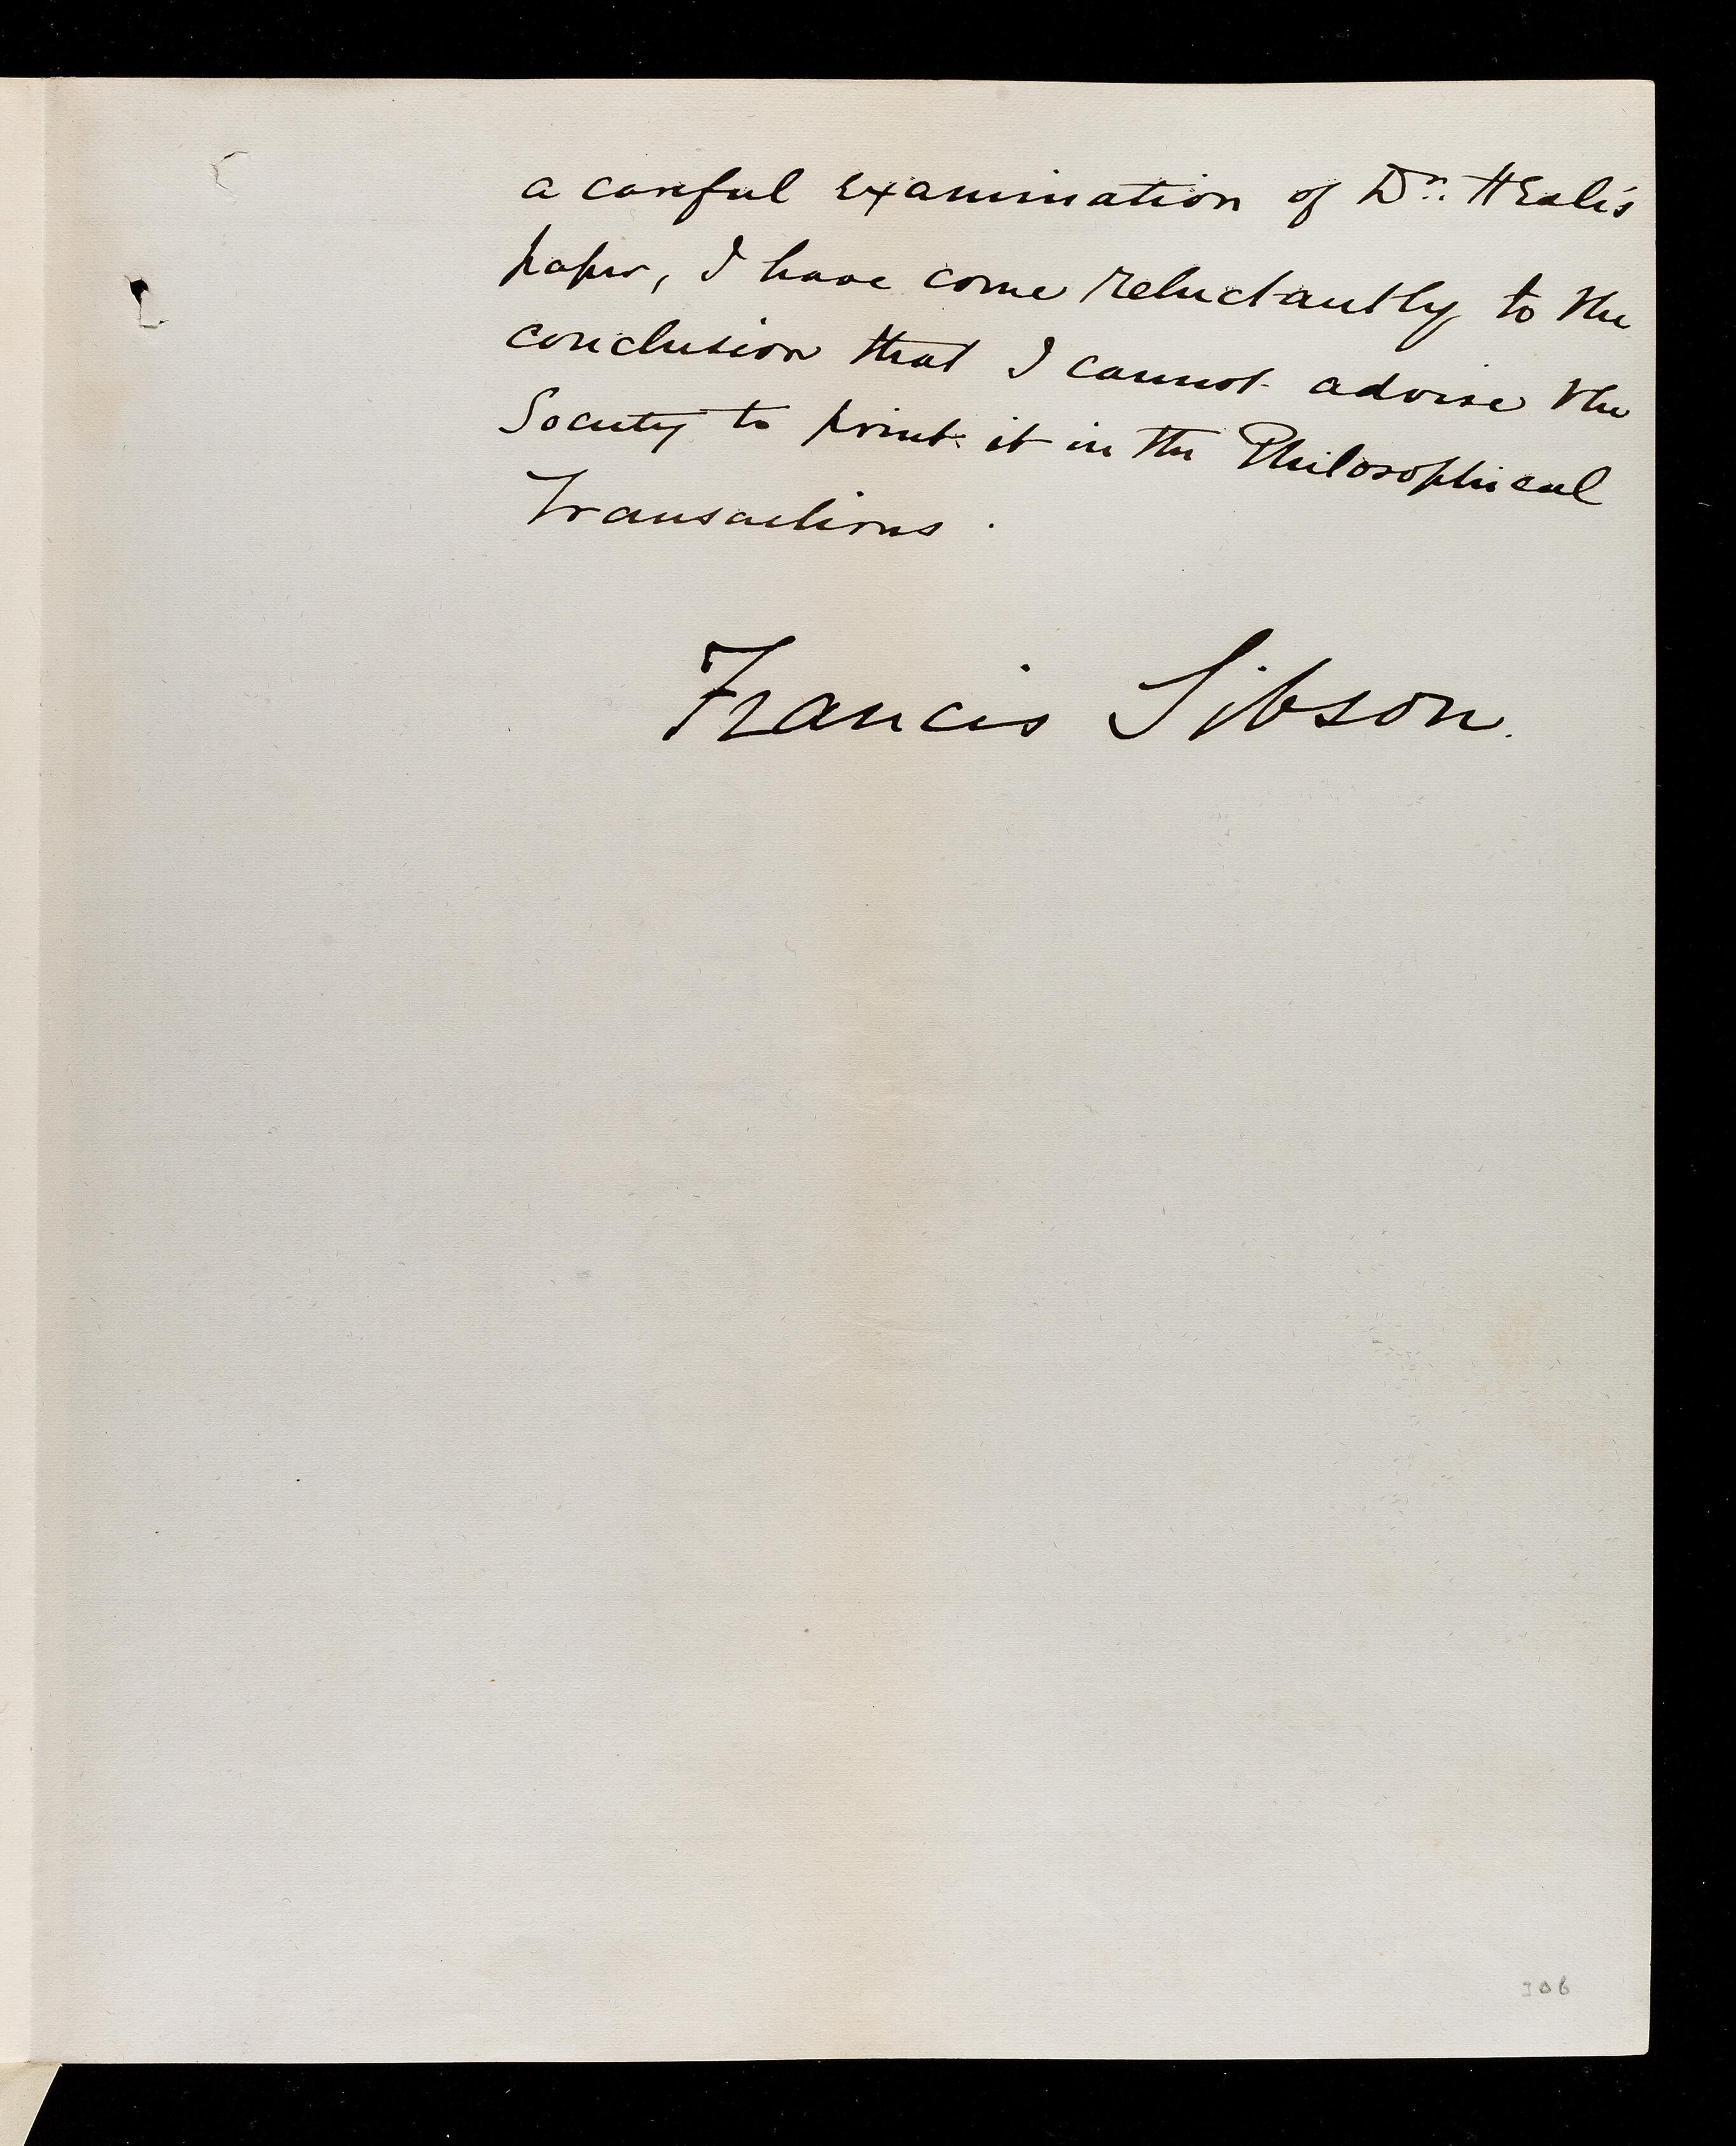 a careful examination of Dr. HEale's
paper, I have come reluctantly to the
conclusion that I cannot advise the
Society to print it in the Philosophical
Transactions.
Francis Sibson.
306